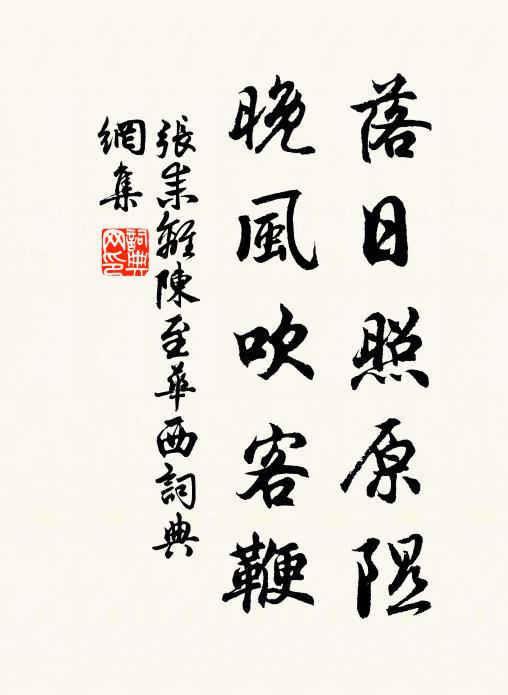 落日照原隰
晚風吹客鞭
張耒離陳至華西詞典
網集
詞典
網印